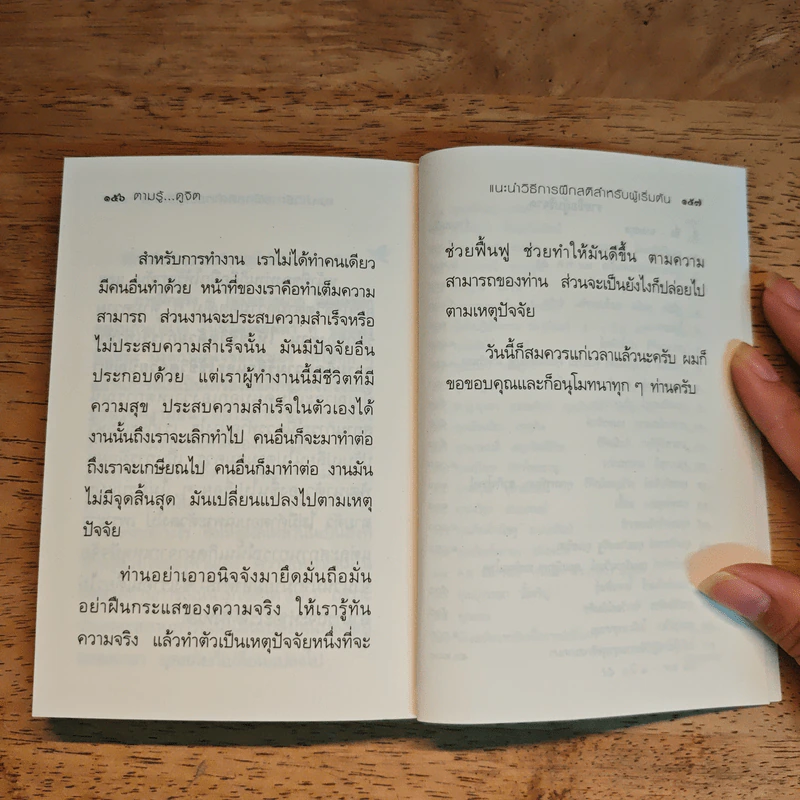 ๑๕๖ ตามรู้...ดูจิต
สำหรับการทำงาน เราไม่ได้ทำคนเดียว
มีคนอื่นทำด้วย หน้าที่ของเราคือทำเต็มความ
สามารถ ส่วนงานจะประสบความสำเร็จหรือ
ไม่ประสบความสำเร็จนั้น มันมีปัจจัยอื่น
ประกอบด้วย แต่เราผู้ทำงานนี้มีชีวิตที่มี
ความสุข ประสบความสำเร็จในตัวเองได้
งานนั้นถึงเราจะเลิกทำไป คนอื่นก็จะมาทำต่อ
ถึงเราจะเกษียณไป คนอื่นก็มาทำต่อ งานมัน
ไม่มีจุดสิ้นสุด มันเปลี่ยนแปลงไปตามเหตุ
ปัจจัย
ท่านอย่าเอาอนิจจังมายึดมั่นถือมั่น
อย่าฝืนกระแสของความจริง ให้เรารู้ทัน
ความจริง แล้วทำตัวเป็นเหตุปัจจัยหนึ่งที่จะ
แนะนำวิธีการฝึกสติสำหรับผู้เริ่มต้น ๑๕๗
ช่วยฟื้นฟู ช่วยทำให้มันดีขึ้น ตามความ
สามารถของท่าน ส่วนจะเป็นยังไงก็ปล่อยไป
ตามเหตุปัจจัย
วันนี้ก็สมควรแก่เวลาแล้วนะครับ ผมก็
ขอขอบคุณและก็อนุโมทนาทุก ๆ ท่านครับ